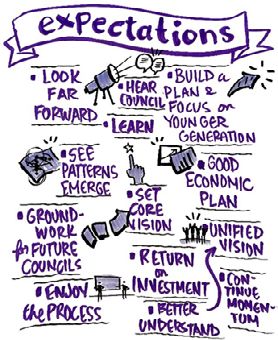 expectations
• LOOK
FAR
FORWARD
• HEAR
COUNCIL
• LEARN
• BUILD a
PLAN &
FOCUS on
YOUNGER
GENERATION
• SEE
PATTERNS
EMERGE
• GOOD
ECONOMIC
PLAN
• SET
CORE
VISION
• GROUND-
WORK
for FUTURE
COUNCILS
• UNIFIED
VISION
• RETURN
on
INVESTMENT
• ENJOY
the PROCESS
• BETTER
UNDERSTAND
• CON
TINUE
MOMEN-
TUM